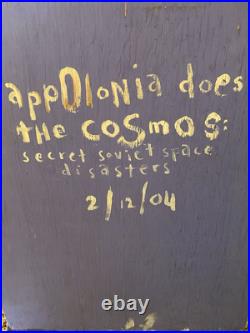 appOloNia does
the coSmos:
secret soviet space
disasters
2/12/04